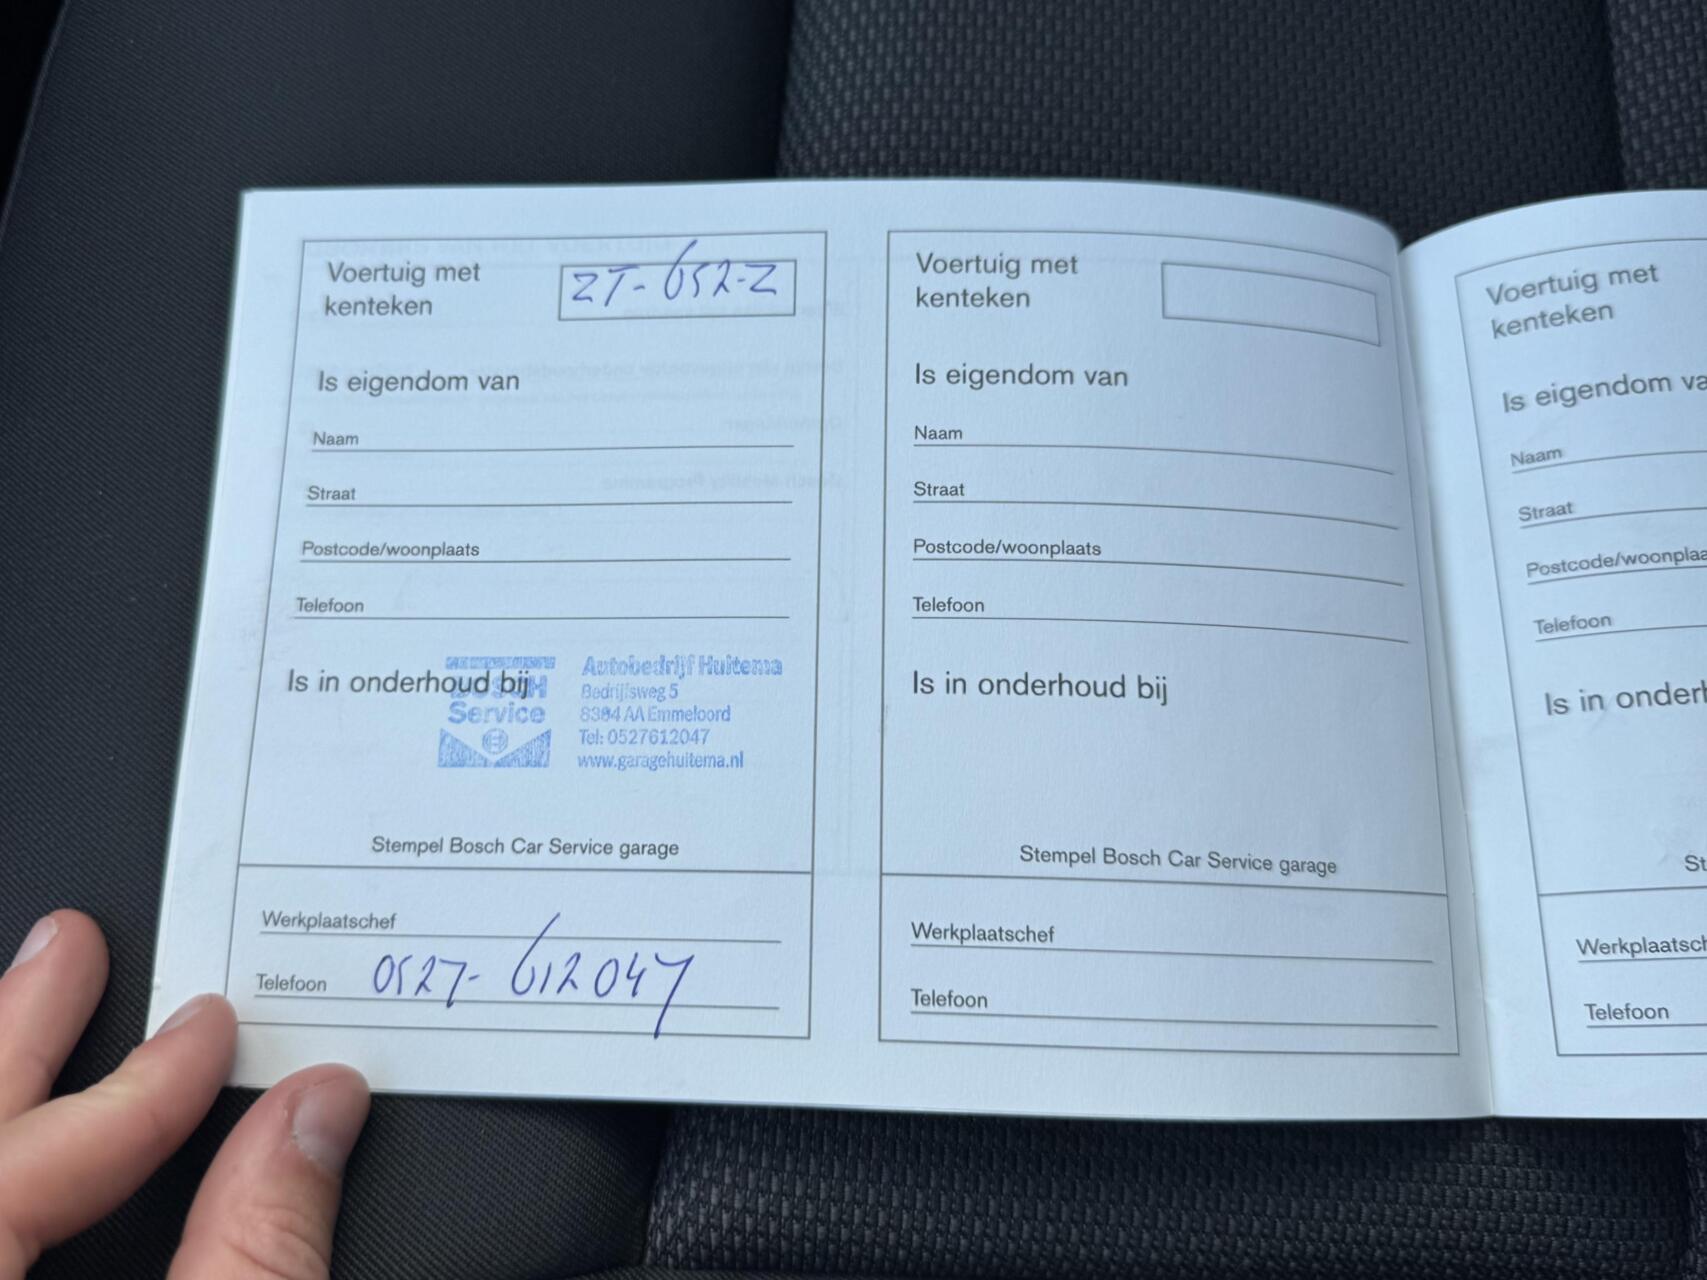 Voertuig met
kenteken
ZT-652-Z
Is eigendom van
Naam
Straat
Postcode/woonplaats
Telefoon
Is in onderhoud bij
BOSCH
Service
Autobedrijf Huitema
Bedrijfsweg 5
8304 AA Emmeloord
Tel: 0527612047
www.garagehuitema.nl
Stempel Bosch Car Service garage
Werkplaatschef
Telefoon 0527-612047
Voertuig met
kenteken
Is eigendom van
Naam
Straat
Postcode/woonplaats
Telefoon
Is in onderhoud bij
Stempel Bosch Car Service garage
Werkplaatschef
Telefoon
Voertuig met
kenteken
Is eigendom va
Naam
Straat
Postcode/woonplaa
Telefoon
Is in onderh
St
Werkplaatsch
Telefoon